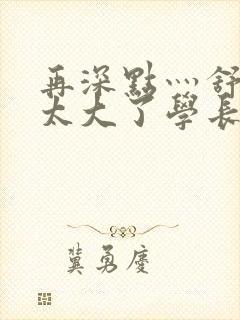 再深點灬舒
太大了學長
冀勇慶